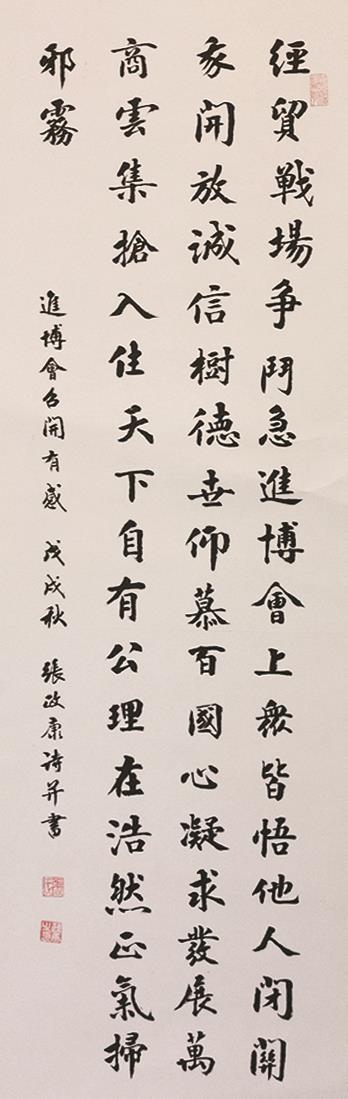 經貿戰場争鬥急進博會上衆皆悟他人閉關
我開放誠信樹德世仰慕百國心凝求發展萬
商雲集搶入住天下自有公理在浩然正氣掃
邪霧
進博會召開有感 戊戌秋 張政康詩并書